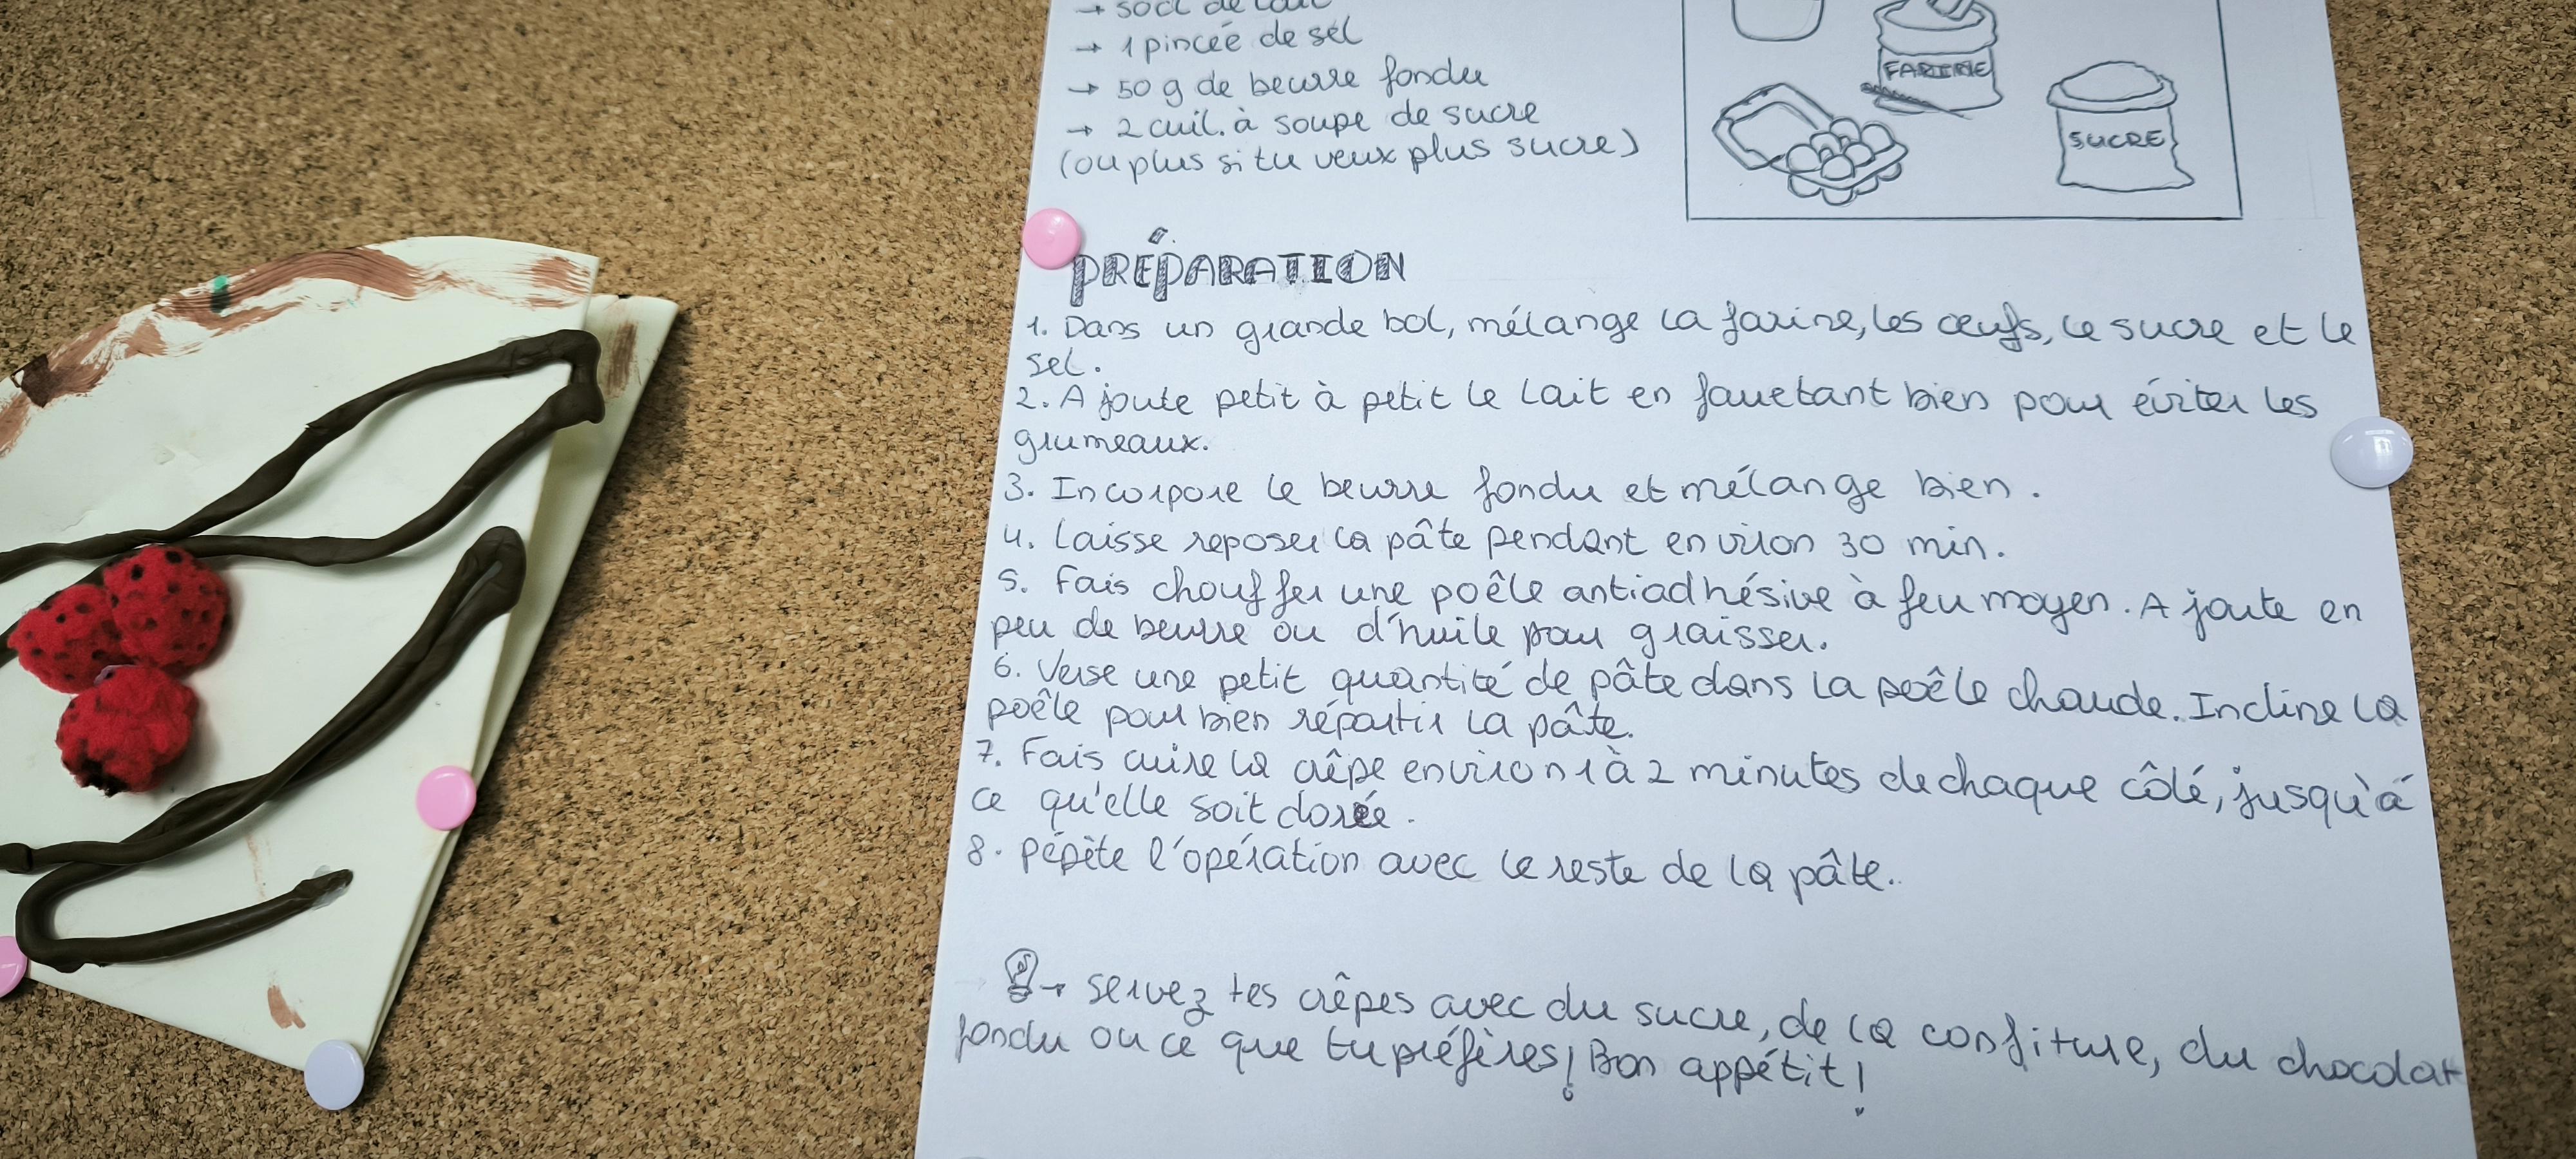 → 50cl de lait
→ 1 pinceé de sel
→ 50 g de beurre fondu
→ 2 cuil. à soupe de sucre
(ou plus si tu veux plus sucre)
FARINE
SUCRE
PRÉPARATION
1. Dans un grande bol, mélange la farine, les œufs, le sucre et le
sel.
2. Ajoute petit à petit le lait en fouetant bien pour éviter les
grumeaux.
3. Incorpore le beurre fondu et mélange bien.
4. Laisse reposer la pâte pendant environ 30 min.
5. Fais chouffer une poêle antiadhésive à feu moyen. Ajoute en
peu de beurre ou d'huile pour graisser.
6. Verse une petit quantité de pâte dans la poêle chaude. Incline la
poêle pour bien répartir la pâte.
7. Fais cuire la crêpe environ 1 à 2 minutes de chaque côlé, jusqu'á
ce qu'elle soit dorée.
8. Pépète l'opération avec le reste de la pâte.
→ Servez tes crêpes avec du sucre, de la confiture, du chocolat
fondu ou ce que tu préfères! Bon appétit!